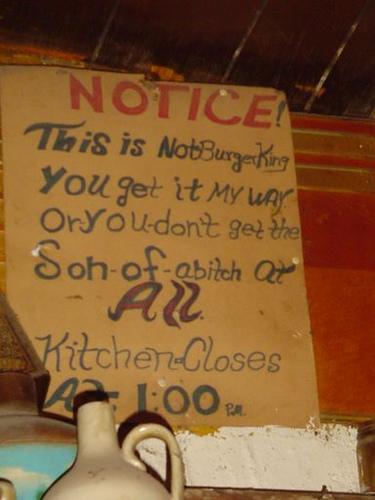 NOTICE!
This is Not Burger King
You get it MY WAY
Or You-don't get the
Son-of-abitch At
All.
Kitchen-Closes
At 1:00 P.M.